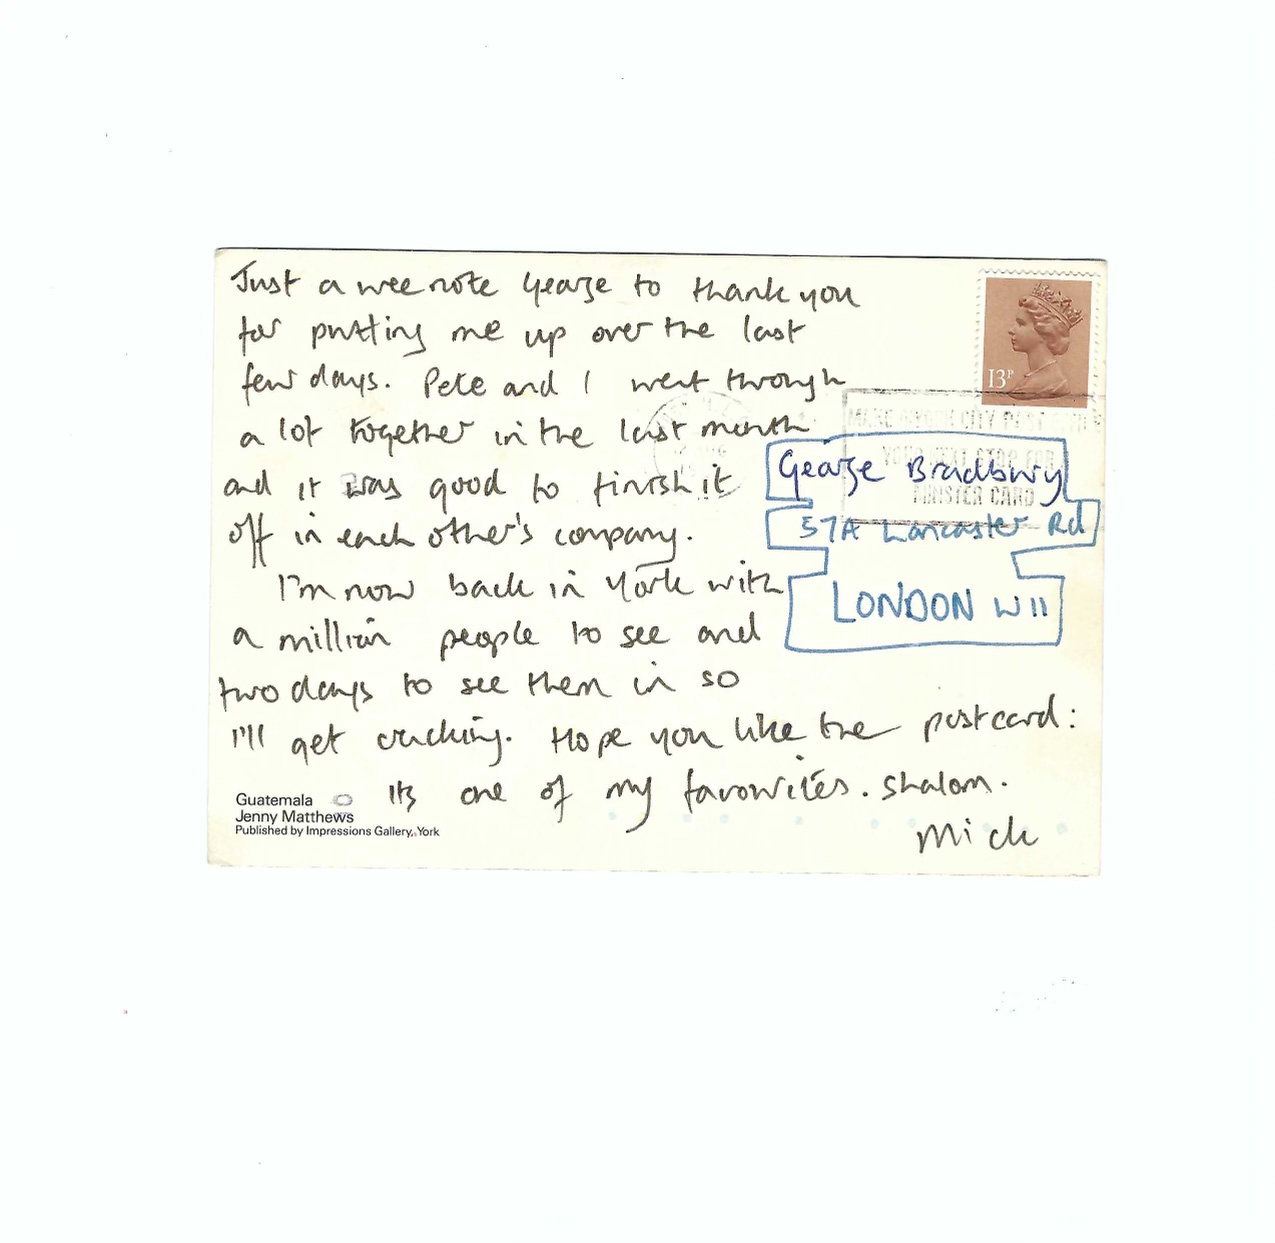 Just a wee note George to thank you
for putting me up over the last
few days. Pete and I went through
a lot together in the last month
and it was good to finish it
off in each other's company.
I'm now back in York with
a million people to see and
two days to see them in so
I'll get cracking. Hope you like the postcard:
Its one of my favourites. Shalom.
Mick
13P
YOUR NEXT STOP FOR
MINSTER CARD
George Bradbury
57A Lancaster Rd
LONDON W11
Guatemala
Jenny Matthews
Published by Impressions Gallery, York